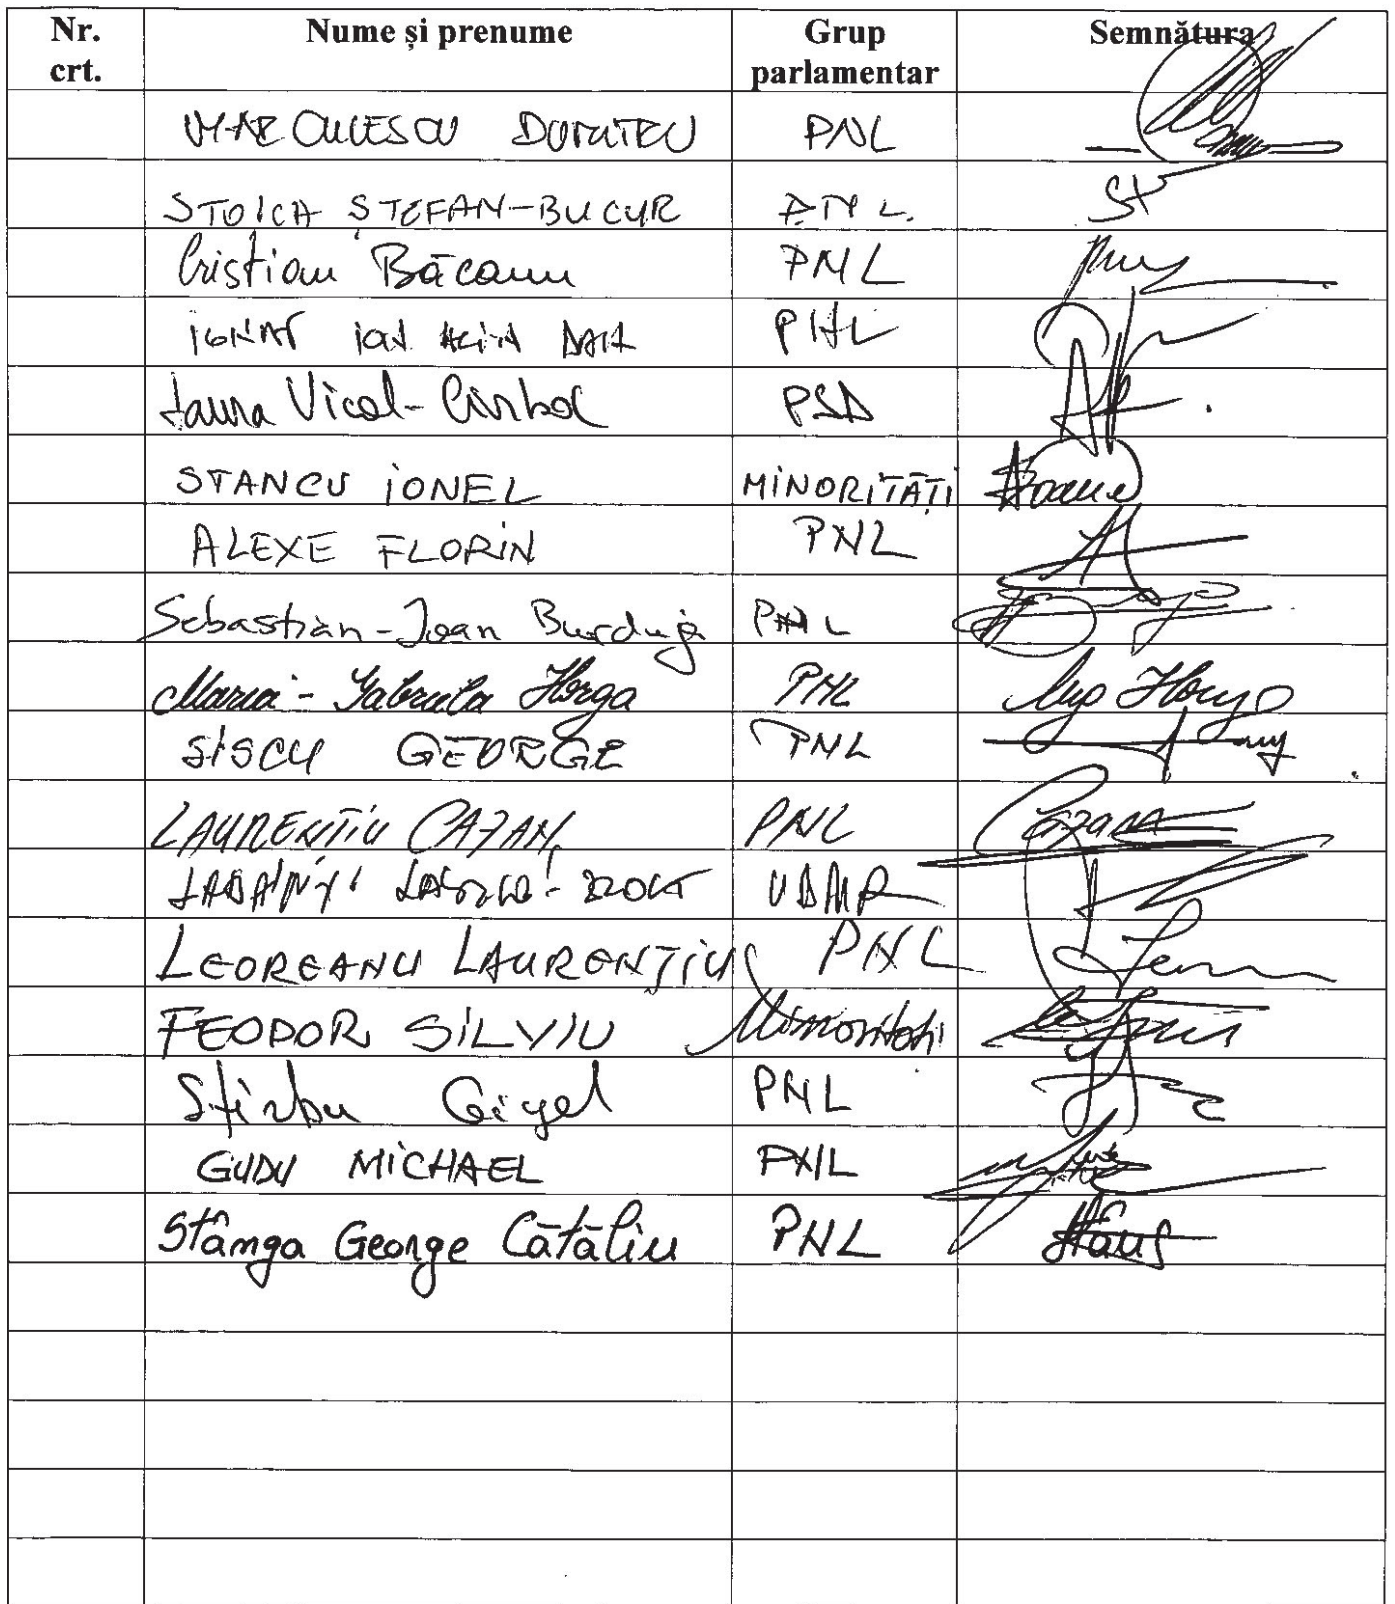 Nr. crt. Nume și prenume Grup parlamentar Semnătura
MĂRCULESCU DUMITRU PNL
STOICA ȘTEFAN-BUCUR PNL.
Cristian Băcanu PNL
IGNAT PNL
Laura Vicol-Ciorbă PSD
STANCU IONEL MINORITĂȚI
ALEXE FLORIN PNL
Sebastian-Ioan Burduja PNL
Maria-Gabriela Horga PNL Horga
SIȘCU GEORGE PNL
LAURENȚIU CAZAN PNL Cazan
LADÁNYI LÁSZLÓ-ZSOLT UDMR
LEOREANU LAURENȚIU PNL
FEODOR SILVIU Minorități
Știrbu Gigel PNL
GUDU MICHAEL PNL
Stânga George Cătălin PNL